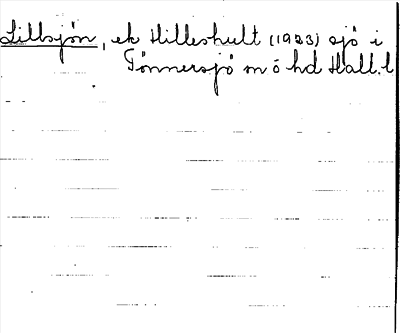 Lillsjön, ek Hilleshult (1923) sjö i
Tönnersjö m ö hd Hall. l